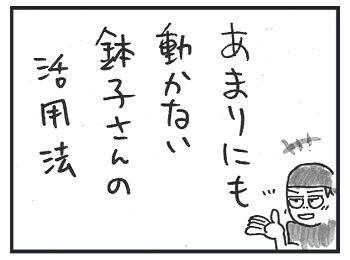 あまりにも
動かない
鉢子さんの
活用法